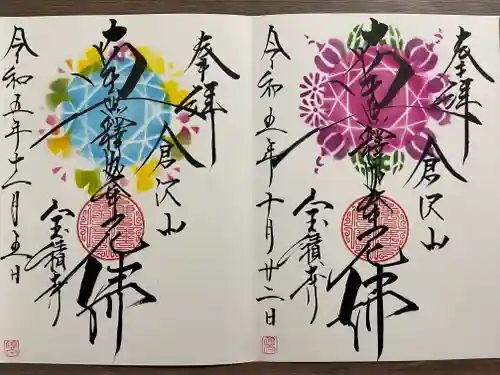 奉拝
倉沢山
南無釋迦牟尼佛
宝積寺
令和五年十一月五日
奉拝
倉沢山
南無釋迦牟尼佛
宝積寺
令和五年十月廿二日